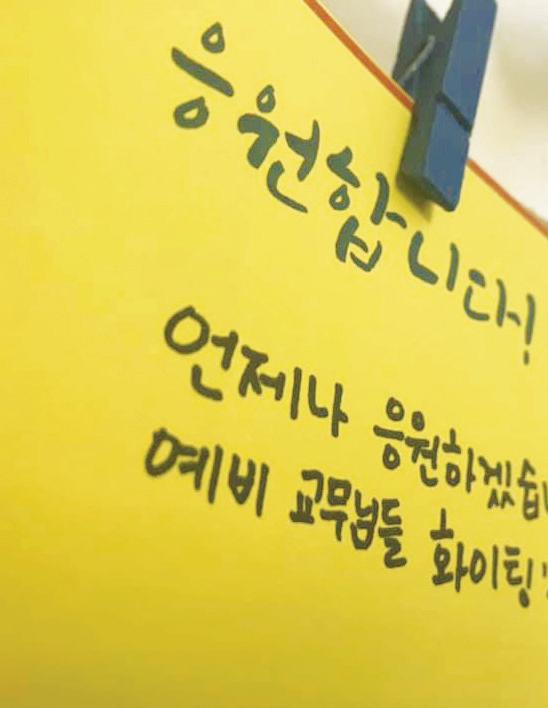 응원합니다!
언제나 응원하겠습
예비 교무님들 화이팅!